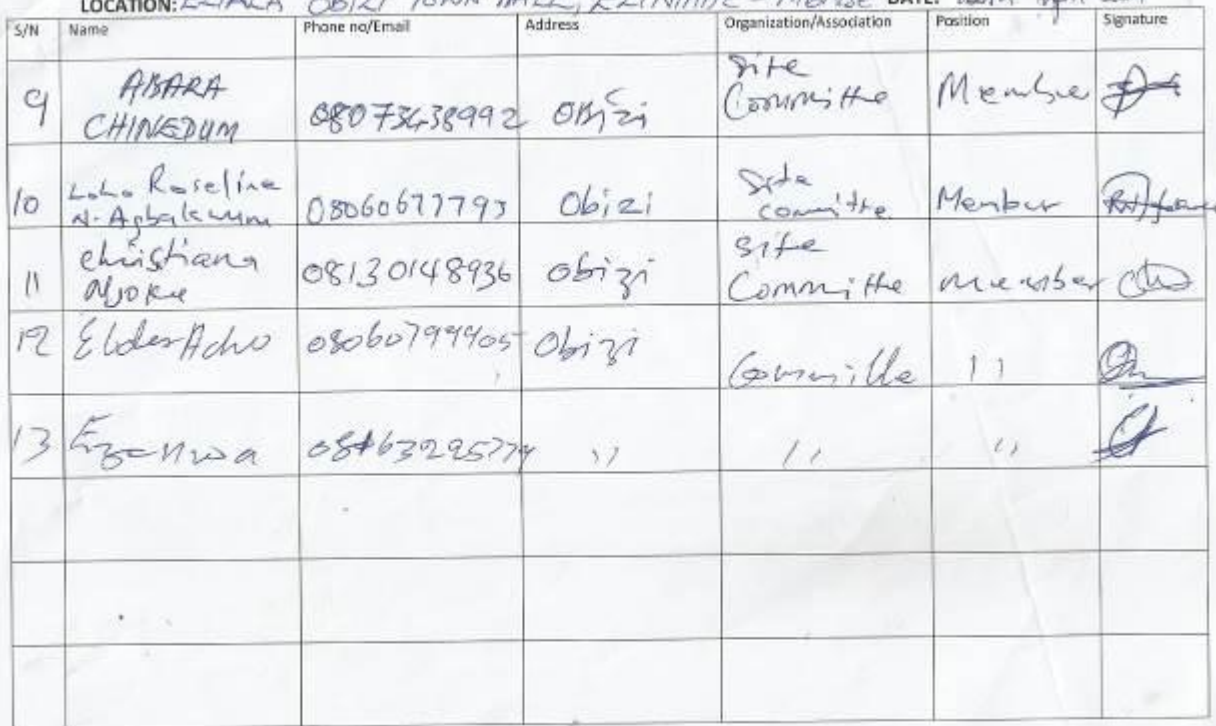 LOCATION: OBIZI TOWN HALL, DATE:
S/N Name Phone no/Email Address Organization/Association Position Signature
9 ABARA CHINEDUM 08073438992 Obizi Site Committee Member
10 Lolo Roseline N. Agbakwuru 08060677793 Obizi Site committee Member
11 Christiana Njoku 08130148936 Obizi Site Committee member
12 Elder Acho 08060799905 Obizi Committee 11
13 11 11 11